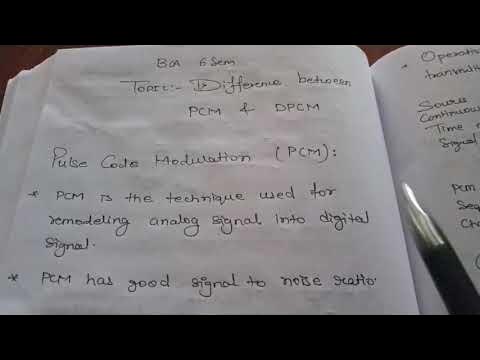 BCA 6 Sem
Topic:- Difference between
PCM & DPCM
Pulse Code Modulation (PCM):
* PCM is the technique used for
remodeling analog signal into digital
signal.
* PCM has good signal to noise ratio.
* Operati
transmit
Source
Continuous
Time
Signal
PCM
Seq
Cha